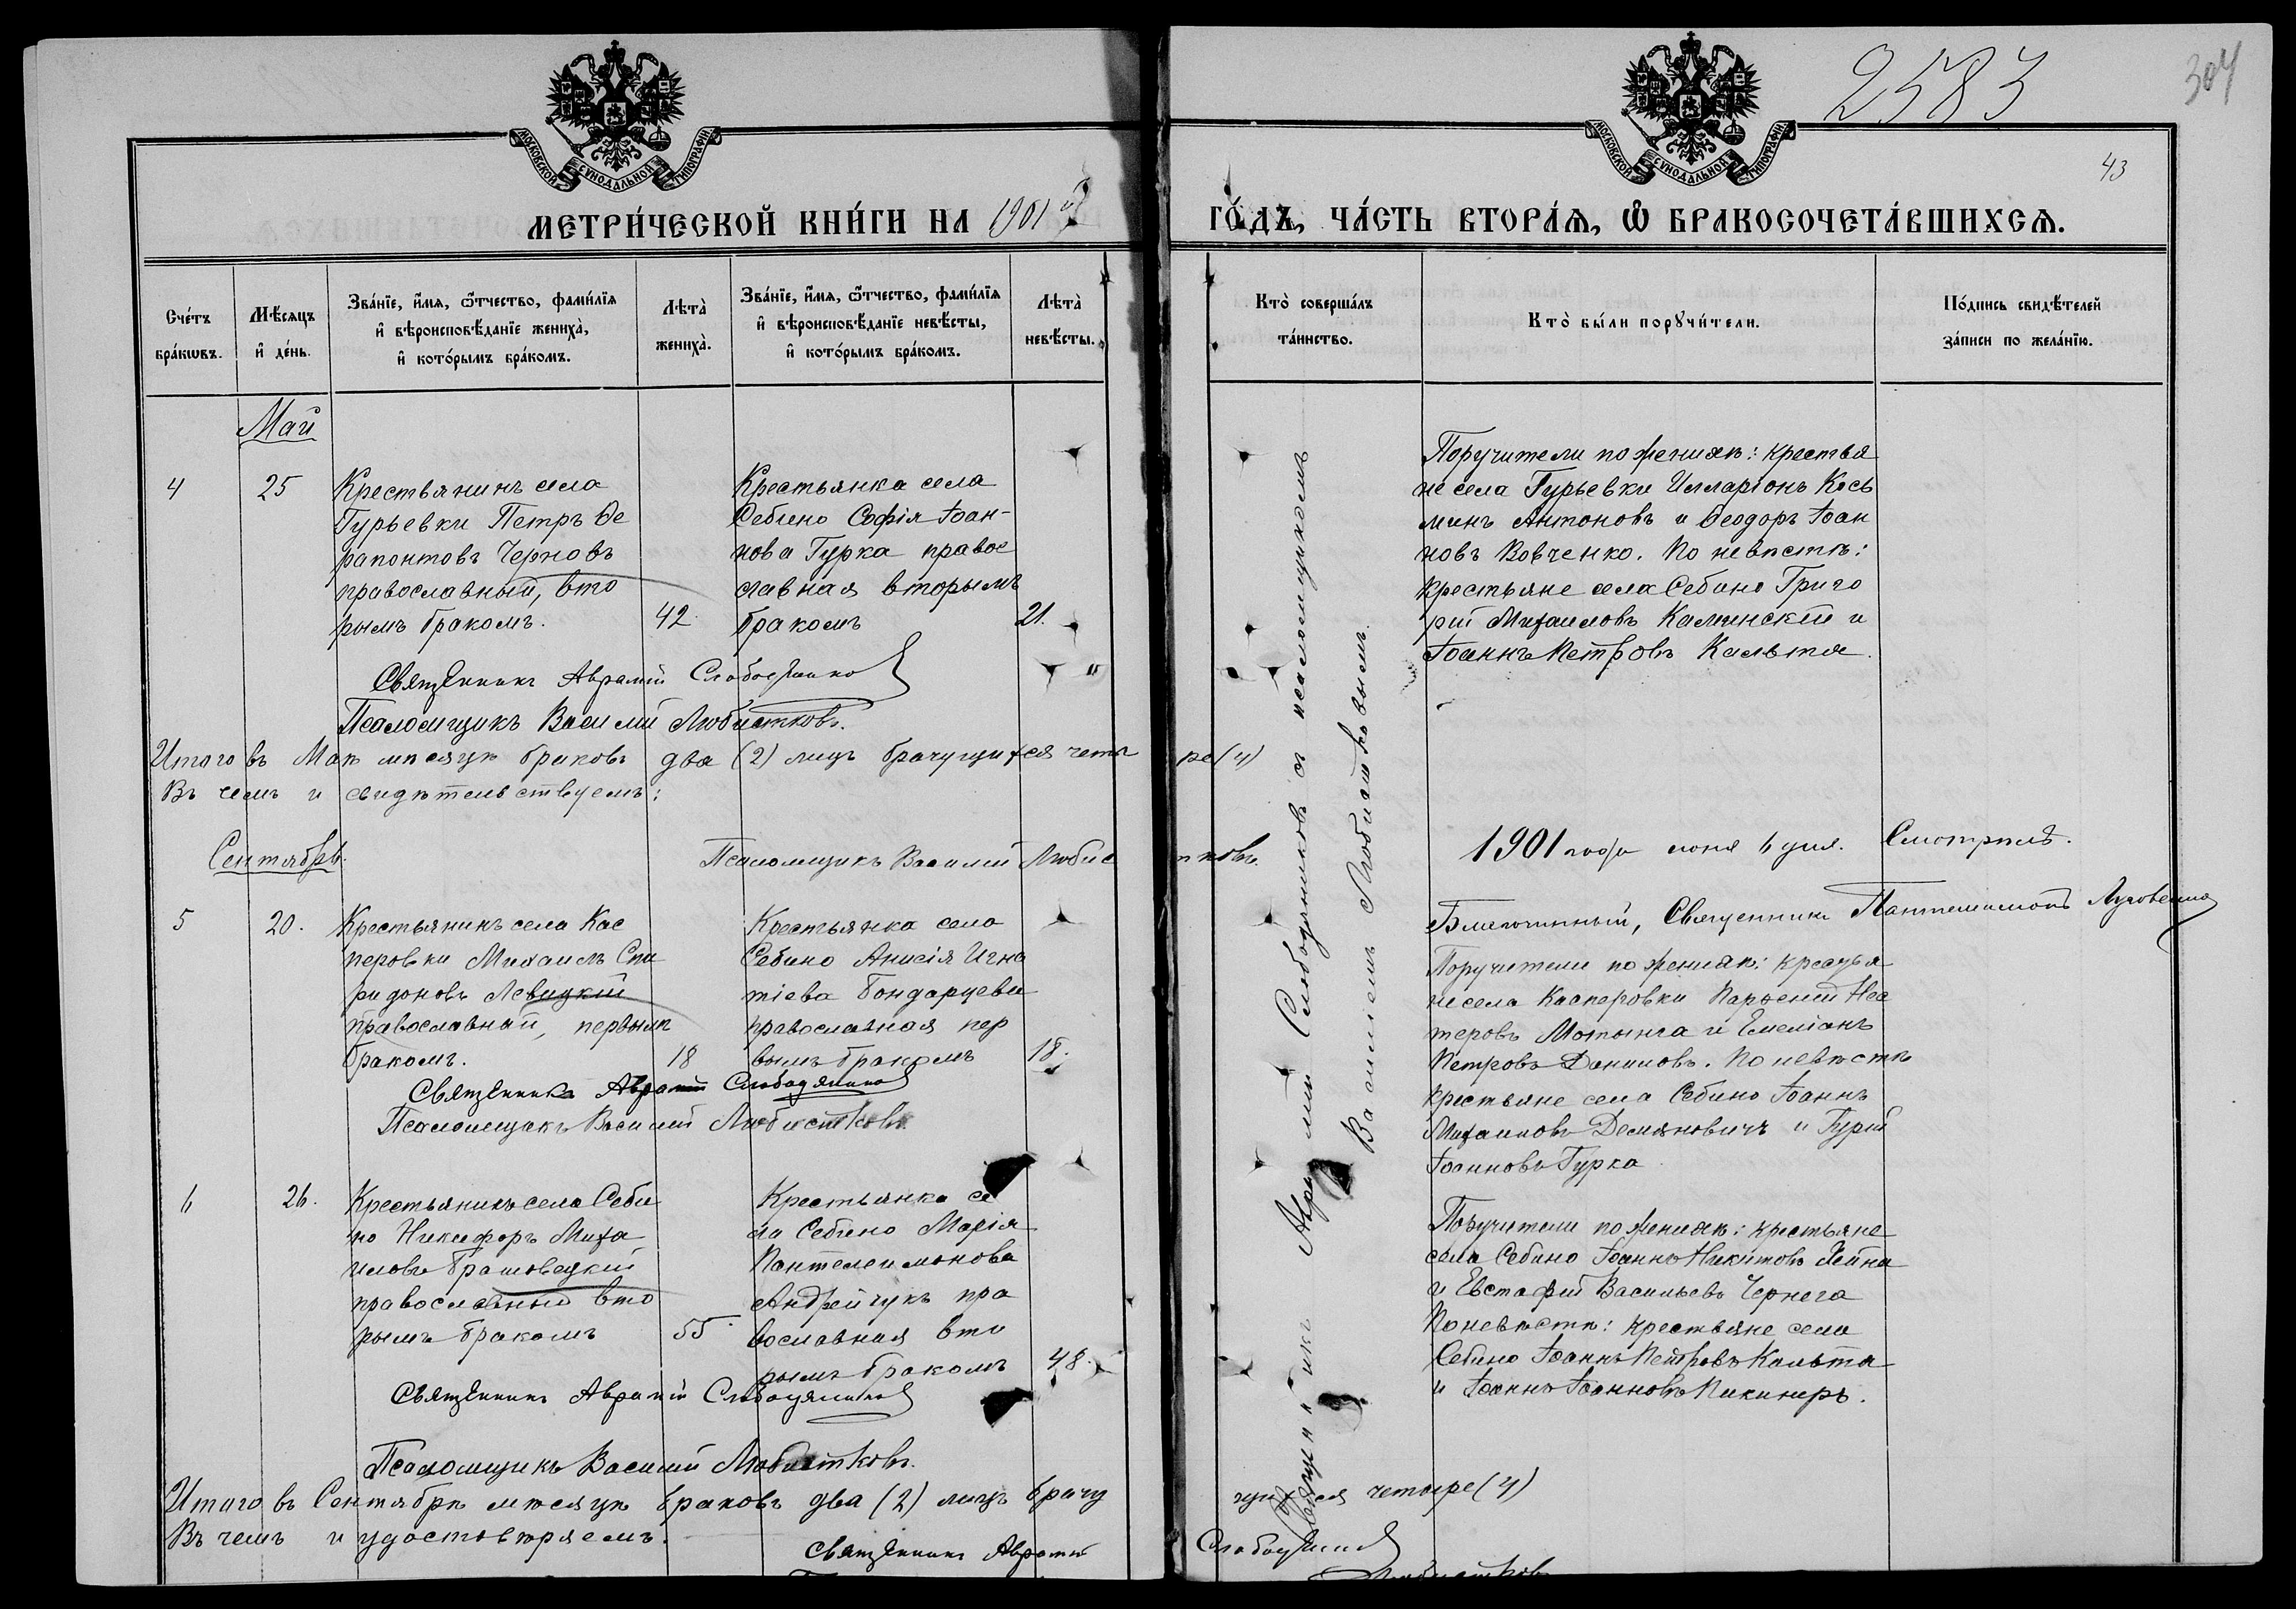 2583
304
43
МОСКОВСКОЙ СѴНОДАЛЬНОЙ ТИПОГРАФІИ
МОСКОВСКОЙ СѴНОДАЛЬНОЙ ТИПОГРАФІИ
МЕТРИ́ЧЕСКОЙ КНИ́ГИ НА 1901й ГО́ДЪ, ЧА́СТЬ ВТОРА́Ѧ, Ѡ҆ БРАКОСОЧЕТА́ВШИХСѦ.
Сче́тъ бра́кѡвъ.
Мѣ́сяцъ и҆ де́нь.
Зва́нїе, и҆́мѧ, ѻ҆́тчество, фами́лїѧ и҆ вѣроисповѣ́данїе жениха̀, и҆ кото́рымъ бра́комъ.
Лѣ́та жениха̀.
Зва́нїе, и҆́мѧ, ѻ҆́тчество, фами́лїѧ и҆ вѣроисповѣ́данїе невѣ́сты, и҆ кото́рымъ бра́комъ.
Лѣ́та невѣ́сты.
Кто̀ соверша́лъ та́инство.
Кто̀ бы́ли порꙋчи́тели.
По́дпись свидѣ́телей за́писи по жела́нїю.
Май
4
25
Крестьянинъ села
Гурьевки Петръ Ѳе
рапонтовъ Черновъ
православный, вто
рымъ бракомъ.
42.
Крестьянка села
Себино Софія Іоан-
нова Гурка правос
лавная вторымъ
бракомъ
21.
Поручители по женихѣ: крестья
не села Гурьевки Илларіонъ Кось
минъ Антоновъ и Ѳеодоръ Іоан
новъ Вовченко. По невѣстѣ:
крестьяне села Себино Григо
рій Михаиловъ Каминскій и
Іоаннъ Петровъ Кальта.
Священникъ Аврамій Слободяников
Псаломщикъ Василій Любистковъ.
Итого въ Маѣ мѣсяцѣ браковъ два (2) лицъ брачущихся четыре (4)
Въ чемъ и свидѣтельствуемъ:
Псаломщикъ Василій Любистковъ.
Священникъ Аврамій Слободяниковъ съ псаломщикомъ
Василіемъ Любистковымъ.
1901 года іюня 6 дня. Смотрѣлъ.
Благочинный, Священникъ Пантелеимонъ
Сентябрь.
5
20.
Крестьянинъ села Кас
перовки Михаилъ Спи
ридоновъ Левицкій
православный, первымъ
бракомъ.
18
Крестьянка села
Себино Анисія Игна
тіева Бондарцева
православная пер
вымъ бракомъ
18.
Поручители по женихѣ: крестья
не села Касперовки Парѳеній Нес
теровъ Мотынга и Емеліанъ
Петровъ Даниловъ. По невѣстѣ
крестьяне села Себино Іоаннъ
Михаиловъ Демяновичъ и Гурій
Іоанновъ Гурка.
Священникъ Аврамій Слободяников
Псаломщикъ Василій Любистковъ.
6
26.
Крестьянинъ села Себи
но Никифоръ Миха
иловъ Брашовецкій
православный вто
рымъ бракомъ
55.
Крестьянка се
ла Себино Марія
Пантелеимонова
Андрейчукъ пра
вославная вто
рымъ бракомъ
48.
Поручители по женихѣ: крестьяне
села Себино Іоаннъ Никитовъ
и Евстафій Васильевъ Чернега
По невѣстѣ: крестьяне села
Себино Іоаннъ Петровъ Кальта
и Іоаннъ Іоанновъ Пикинеръ.
Священникъ Аврамій Слободяников
Псаломщикъ Василій Любистковъ.
Итого въ Сентябрѣ мѣсяцѣ браковъ два (2) лицъ брачущихся четыре (4)
Въ чемъ и удостовѣряемъ.
Священникъ Аврамій Слободяников